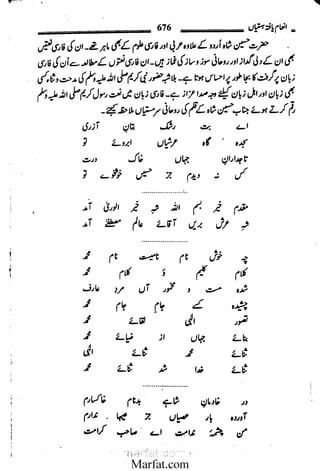 انعام یافتہ ہستیاں
676
حضرت حسین شاہ اردو کے علاوہ عربی اور فارسی علوم کے بھی ماہر تھے۔ ان کی فارسی نعتیں
بھی ان کے دلی گداز اور روحانی سوز و ساز کی غماز ہیں۔ ان فارسی نعتوں کے مطالعہ سے ان کی فارسی
زبان پر گرفت کا بجا طور پر احساس ہوتا ہے۔ بلاشبہ حضور نبی کریم صلی اللہ علیہ وسلم کی مدحت و ثناء کی
بھی زبان اور اہل زبان کیلئے وجہ صد اعزاز ہے۔ فارسی زبان میں نعت رسول کریم صلی اللہ علیہ وسلم
رقم کرتے ہوئے جناب حسین شاہ کے قلم کی روحانی سرمستیاں ملاحظہ کیجئے۔
اے بت رشک بتان آزری
سجدہ گاہ عرشیاں ابروئے تو
تاجداران جہاں خاک درت
کس نہ دیدم جز حسیں خوئے تو
مقدم خیر بسم اللہ شہ خیر الوریٰ آمد
شہ عرش بریں آقائے عالم مصطفیٰ آمد
چہ خوش نام نامیست نام محمد
کلام کلیم و کلام محمد
شدہ مست و مخمور آں مرد عارف
چشیدہ کے جام جام محمد
تصور الٰہی لقائے محمد
بنائے جہاں از ضیائے محمد
ثنائے محمد ثنائے الٰہی
ثنائے خدا شد ثنائے محمد
در خادمان شاہے بدنام خاکسارم
آوردہ بار عصیاں جز عیبہا ندارم
من چشمۂ ندامت اے صاحب کرامت
marfat.com
Marfat.com